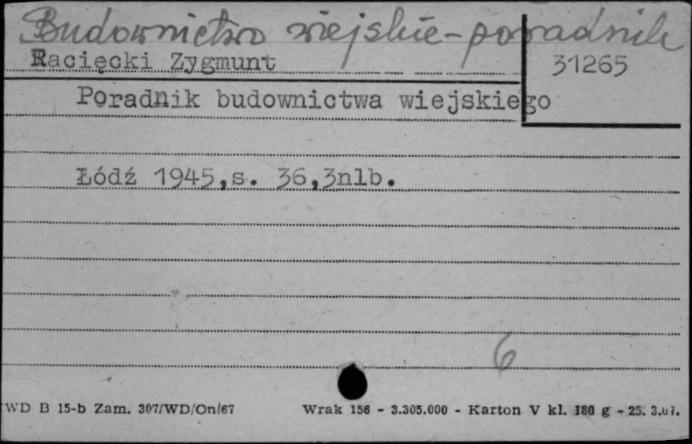 Budownictwo wiejskie - poradnik
Racięcki Zygmunt
31265
Poradnik budownictwa wiejskiego
Łódź 1945,s. 36,3nlb.
6
WD B 15-b Zam. 307/WD/On/67
Wrak 156 - 3.305.000 - Karton V kl. 180 g - 25. 3.67.